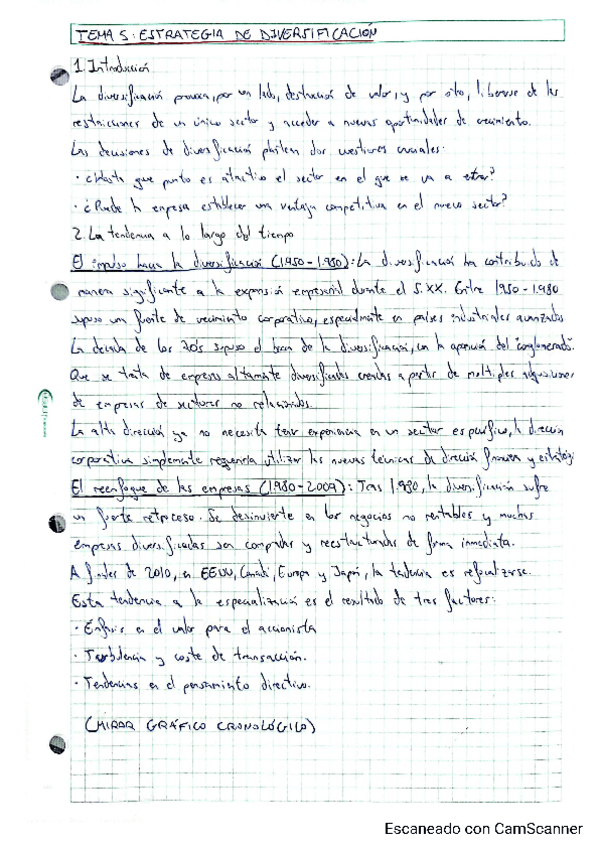 TEMA 5: ESTRATEGIA DE DIVERSIFICACIÓN
1. Introducción
La diversificación provoca, por un lado, destrucción de valor, y por otro, liberarse de las
restricciones de un único sector y acceder a nuevas oportunidades de crecimiento.
Las decisiones de diversificación plantean dos cuestiones cruciales:
· ¿Hasta que punto es atractivo el sector en el que se va a entrar?
· ¿Puede la empresa establecer una ventaja competitiva en el nuevo sector?
2. La tendencia a lo largo del tiempo
El impulso hacia la diversificación (1.950-1.980): La diversificación ha contribuido de
manera significante a la expansión empresarial durante el S.XX. Entre 1950-1.980
supuso una fuente de crecimiento corporativo, especialmente en países industriales avanzados
La década de los 70's supuso el boom de la diversificación, con la aparición del conglomerado.
Que se trata de empresas altamente diversificadas creadas a partir de multiples adquisiciones
de empresas de sectores no relacionados.
La alta dirección ya no necesita tener experiencia en un sector específico, la dirección
corporativa simplemente requería utilizar las nuevas técnicas de dirección financiera y
El reenfoque de las empresas (1.980-2009): Tras 1.980, la diversificación sufre
un fuerte retroceso. Se desinvierte en los negocios no rentables y muchas
empresas diversificadas son compradas y reestructuradas de forma inmediata.
A finales de 2010, en EEUU, Canadá, Europa y Japón, la tendencia es refocalizarse.
Esta tendencia a la especialización es el resultado de tres factores:
· Énfasis en el valor para el accionista
· Turbulencia y coste de transacción.
· Tendencias en el pensamiento directivo.
(MIRAR GRÁFICO CRONOLÓGICO)
Escaneado con CamScanner